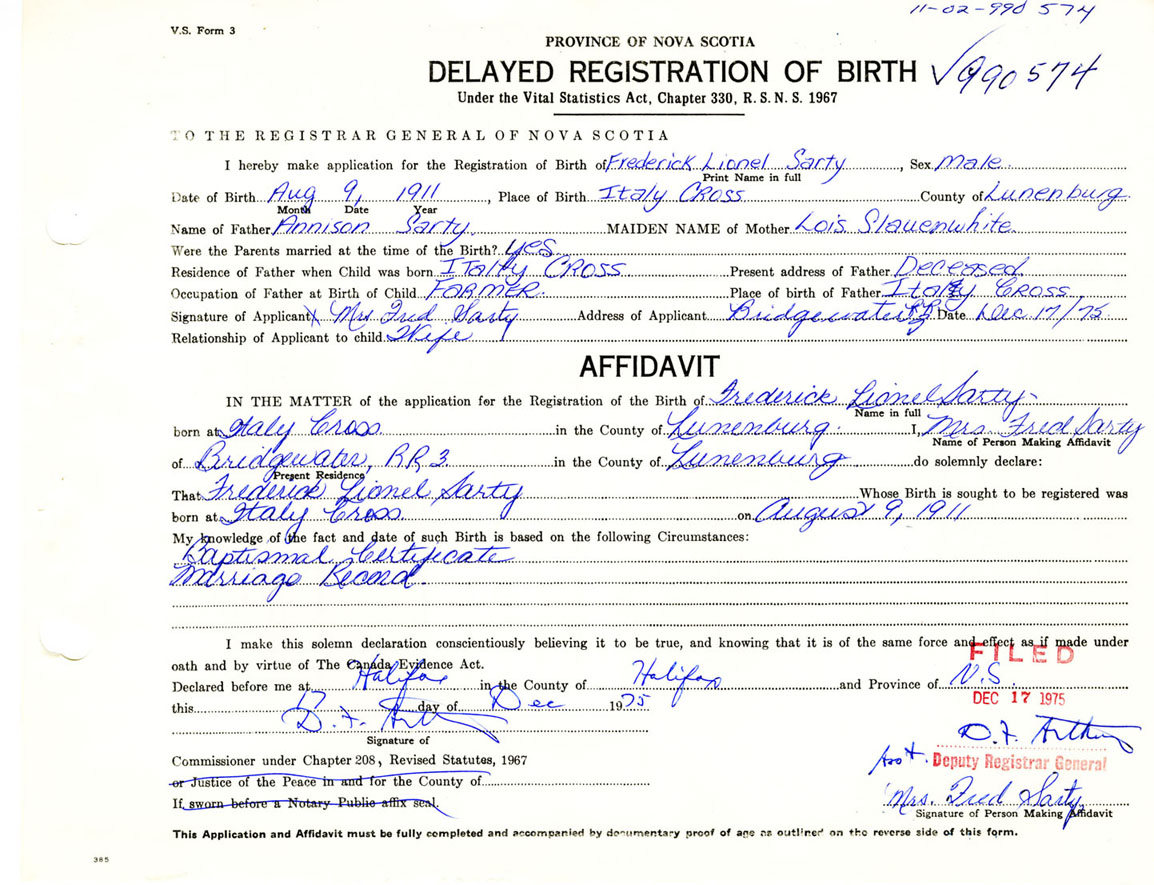 11-02-990 574
V.S. Form 3
PROVINCE OF NOVA SCOTIA
DELAYED REGISTRATION OF BIRTH √990574
Under the Vital Statistics Act, Chapter 330, R.S.N.S. 1967
TO THE REGISTRAR GENERAL OF NOVA SCOTIA
I hereby make application for the Registration of Birth of Frederick Lionel Sarty, Sex Male
Print Name in full
Date of Birth Aug 9, 1911, Place of Birth Italy Cross County of Lunenburg
Month Date Year
Name of Father Annison Sarty MAIDEN NAME of Mother Lois Slauenwhite
Were the Parents married at the time of the Birth? Yes
Residence of Father when Child was born Italy Cross Present address of Father Deceased
Occupation of Father at Birth of Child FARMER Place of birth of Father Italy Cross
Signature of Applicant X Mrs Fred Sarty Address of Applicant Bridgewater Date Dec 17/75
Relationship of Applicant to child Wife
AFFIDAVIT
IN THE MATTER of the application for the Registration of the Birth of Frederick Lionel Sarty
Name in full
born at Italy Cross in the County of Lunenburg I, Mrs Fred Sarty
Name of Person Making Affidavit
of Bridgewater, RR3 in the County of Lunenburg do solemnly declare:
Present Residence
That Frederick Lionel Sarty Whose Birth is sought to be registered was
born at Italy Cross on August 9, 1911
My knowledge of the fact and date of such Birth is based on the following Circumstances:
Baptismal Certificate
Marriage Record
I make this solemn declaration conscientiously believing it to be true, and knowing that it is of the same force and effect as if made under
FILED
oath and by virtue of The Canada Evidence Act.
Declared before me at Halifax in the County of Halifax and Province of N.S.
DEC 17 1975
this 17 day of Dec 1975
D. F. Arthur
Signature of
D. F. Arthur
Commissioner under Chapter 208, Revised Statutes, 1967
Asst. Deputy Registrar General
or Justice of the Peace in and for the County of
If sworn before a Notary Public affix seal.
Mrs. Fred Sarty
Signature of Person Making Affidavit
This Application and Affidavit must be fully completed and accompanied by documentary proof of age as outlined on the reverse side of this form.
385